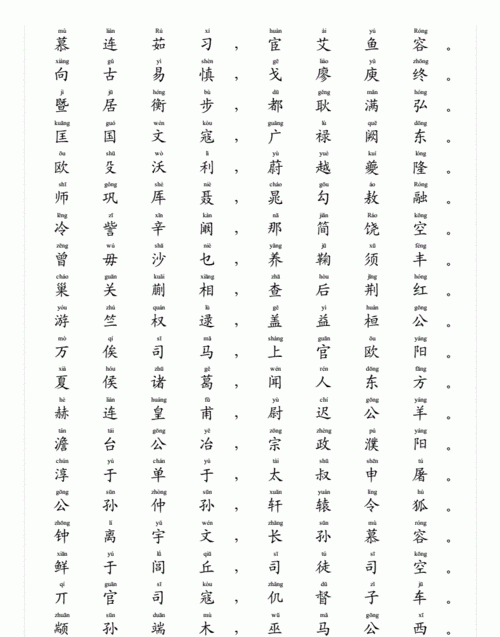 mù lián Rú xí huàn ài yú Róng
慕连茹习,宦艾鱼容。
xiàng gǔ yì shèn gē liào yǔ zhōng
向古易慎,戈廖庾终。
jì jū hóng bù dū gěng mǎn hóng
暨居衡步,都耿满弘。
kuāng guó wén kòu guǎng lù quē dōng
匡国文寇,广禄阙东。
ōu shū wò lì yù yuè kuí lóng
欧殳沃利,蔚越夔隆。
shī gǒng shè niè cháo gōu áo Róng
师巩厍聂,晁勾敖融。
lěng zǐ xīn kàn nā jiǎn Ráo kōng
冷訾辛阚,那简饶空。
zēng wú shā niè yǎng jū xū fēng
曾毋沙乜,养鞠须丰。
cháo guān kuǎi xiàng zhā hòu jīng hóng
巢关蒯相,查后荆红。
yóu zhú quán lù gě yì huán gōng
游竺权逯,盖益桓公。
mò qí sī mǎ shàng guān ōu yáng
万俟司马,上官欧阳。
xià hóu zhū gě wén rén dōng fāng
夏侯诸葛,闻人东方。
hè lián huáng fǔ yù chí gōng yáng
赫连皇甫,尉迟公羊。
tán tái gōng yě zōng zhèng pú yáng
澹台公冶,宗政濮阳。
chún yú chán yú tài shū shēn tú
淳于单于,太叔申屠。
gōng sūn zhòng sūn xuān yuán líng hú
公孙仲孙,轩辕令狐。
zhōng lí yǔ wén zhǎng sūn mù róng
钟离宇文,长孙慕容。
xiān yú lǘ qiū sī tú sī kōng
鲜于闾丘,司徒司空。
qí guān sī kòu zhǎng dū zǐ jū
丌官司寇,仉督子车。
zhuān sūn duān mù wū mǎ gōng xī
颛孙端木,巫马公西。